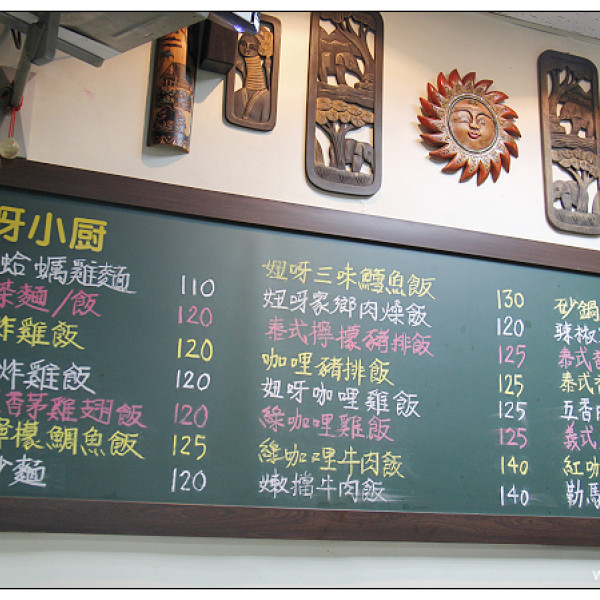 呀小厨
蛤蠣雞麵 110
菜麵/飯 120
炸雞飯 120
炸雞飯 120
香茅雞翅飯 120
檸檬鯛魚飯 125
炒麵 120
妞呀三味鱈魚飯 130
妞呀家鄉肉燥飯 120
泰式檸檬豬排飯 125
咖哩豬排飯 125
妞呀咖哩雞飯 125
綠咖哩雞飯 125
綠咖哩牛肉飯 140
嫩擋牛肉飯 140
砂鍋
辣椒
泰式
泰式
五香
義式
紅咖
勒馬